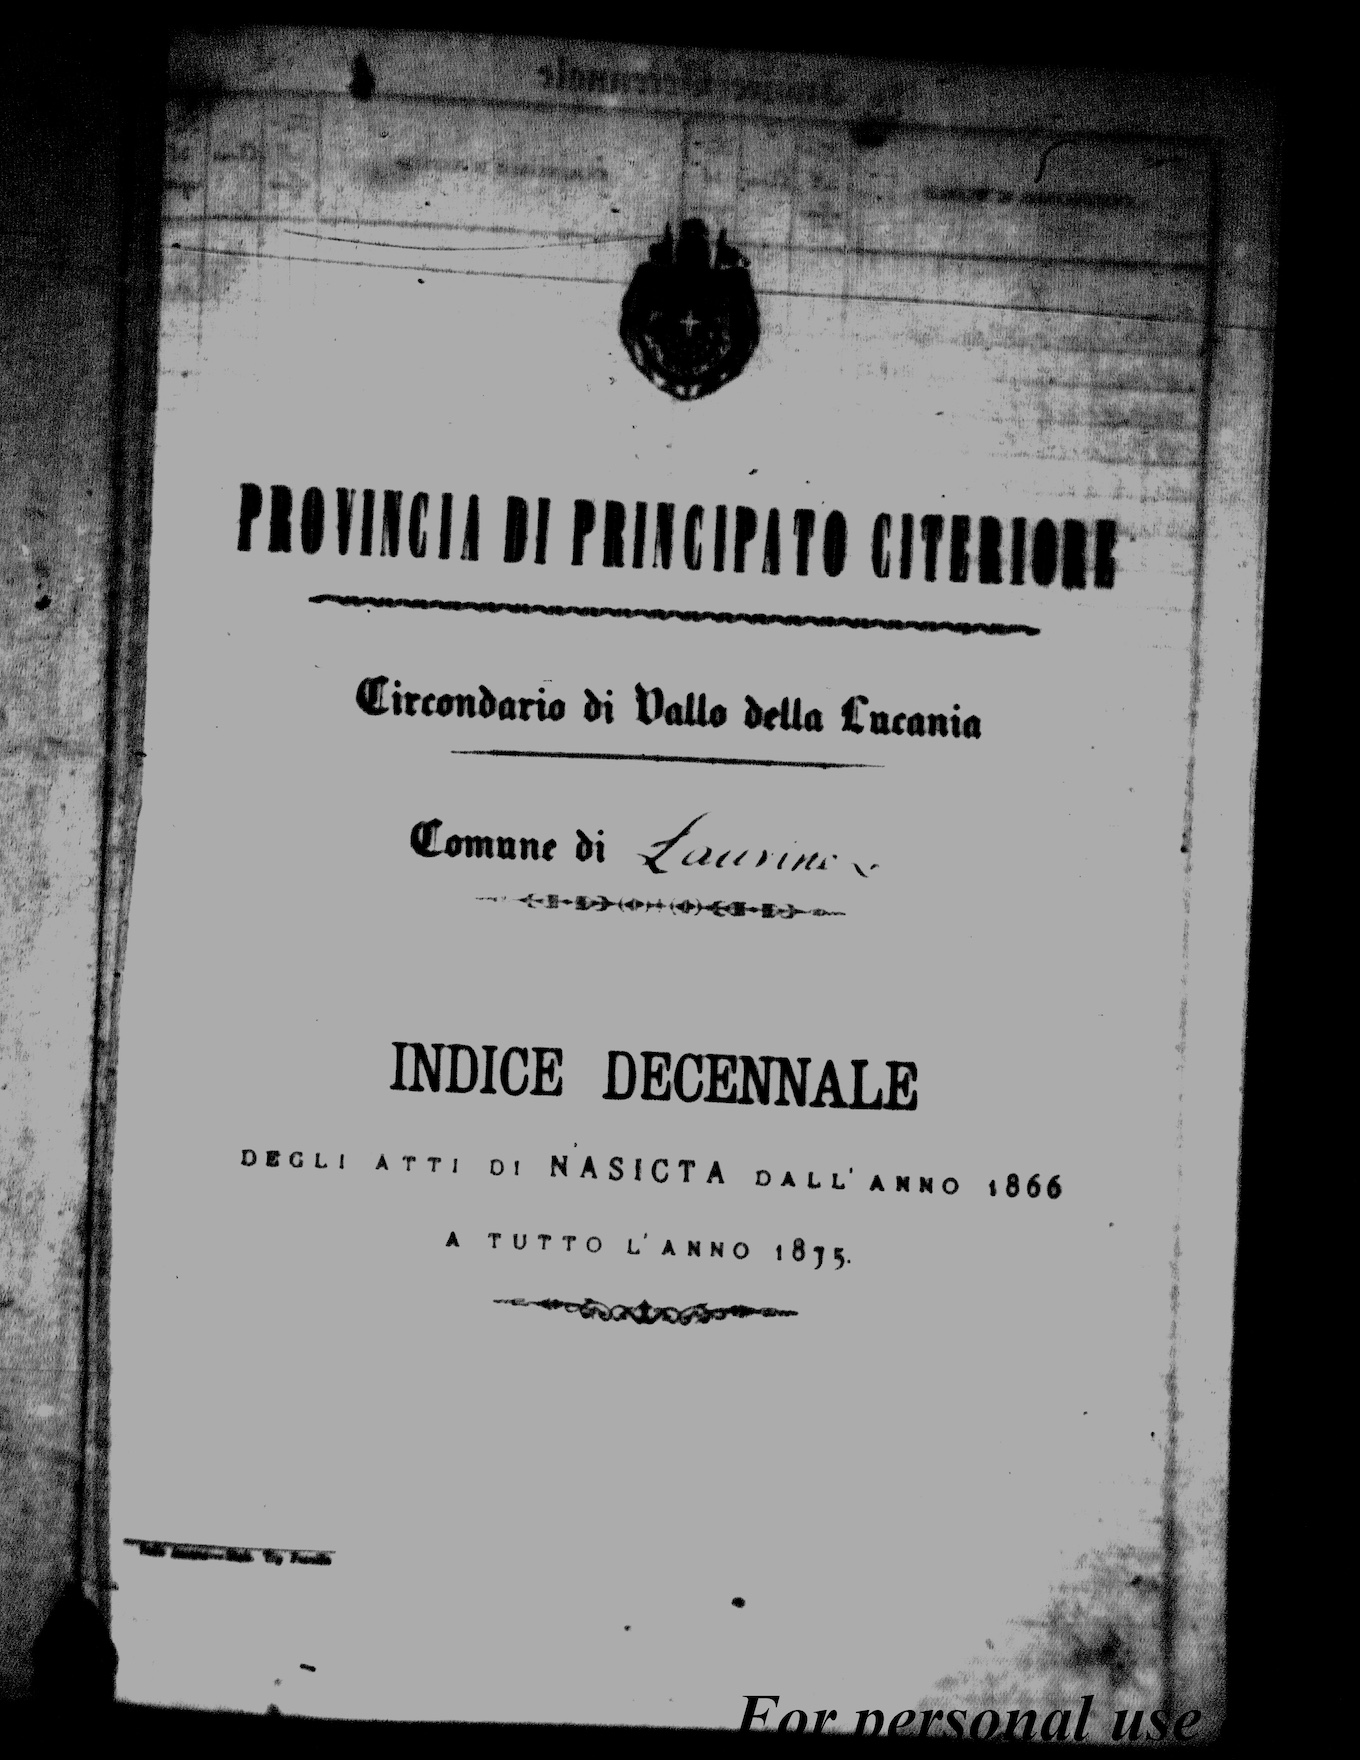 PROVINCIA DI PRINCIPATO CITERIORE
Circondario di Vallo della Lucania
Comune di Laurino
INDICE DECENNALE
DEGLI ATTI DI NASICTA DALL'ANNO 1866
A TUTTO L'ANNO 1875.
For personal use